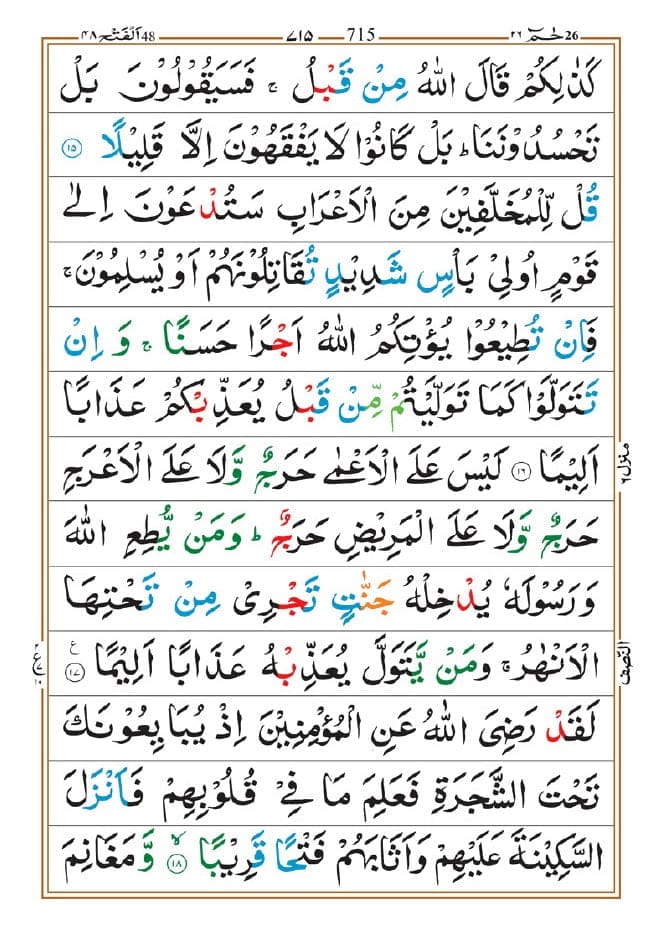 26 حٰمٓ ٢٦
715 ـ ٧١٥
48 اَلْفَتْح ٤٨
كَذٰلِكُمْ قَالَ اللّٰهُ مِنْ قَبْلُ ۚ فَسَيَقُوْلُوْنَ بَلْ
تَحْسُدُوْنَنَا ؕ بَلْ كَانُوْا لَا يَفْقَهُوْنَ اِلَّا قَلِيْلًا ۝١٥
قُلْ لِّلْمُخَلَّفِيْنَ مِنَ الْاَعْرَابِ سَتُدْعَوْنَ اِلٰى
قَوْمٍ اُولِيْ بَاْسٍ شَدِيْدٍ تُقَاتِلُوْنَهُمْ اَوْ يُسْلِمُوْنَ ۚ
فَاِنْ تُطِيْعُوْا يُؤْتِكُمُ اللّٰهُ اَجْرًا حَسَنًا ۚ وَ اِنْ
تَتَوَلَّوْا كَمَا تَوَلَّيْتُمْ مِّنْ قَبْلُ يُعَذِّبْكُمْ عَذَابًا
اَلِيْمًا ۝١٦ لَيْسَ عَلَى الْاَعْمٰى حَرَجٌ وَّلَا عَلَى الْاَعْرَجِ
حَرَجٌ وَّلَا عَلَى الْمَرِيْضِ حَرَجٌ ؕ وَمَنْ يُّطِعِ اللّٰهَ
وَرَسُوْلَهٗ يُدْخِلْهُ جَنّٰتٍ تَجْرِيْ مِنْ تَحْتِهَا
الْاَنْهٰرُ ۚ وَمَنْ يَّتَوَلَّ يُعَذِّبْهُ عَذَابًا اَلِيْمًا ۝١٧ ع
لَقَدْ رَضِيَ اللّٰهُ عَنِ الْمُؤْمِنِيْنَ اِذْ يُبَايِعُوْنَكَ
تَحْتَ الشَّجَرَةِ فَعَلِمَ مَا فِيْ قُلُوْبِهِمْ فَاَنْزَلَ
السَّكِيْنَةَ عَلَيْهِمْ وَاَثَابَهُمْ فَتْحًا قَرِيْبًا ۝١٨ ۙ وَّمَغَانِمَ
منزل ٦
النّصف